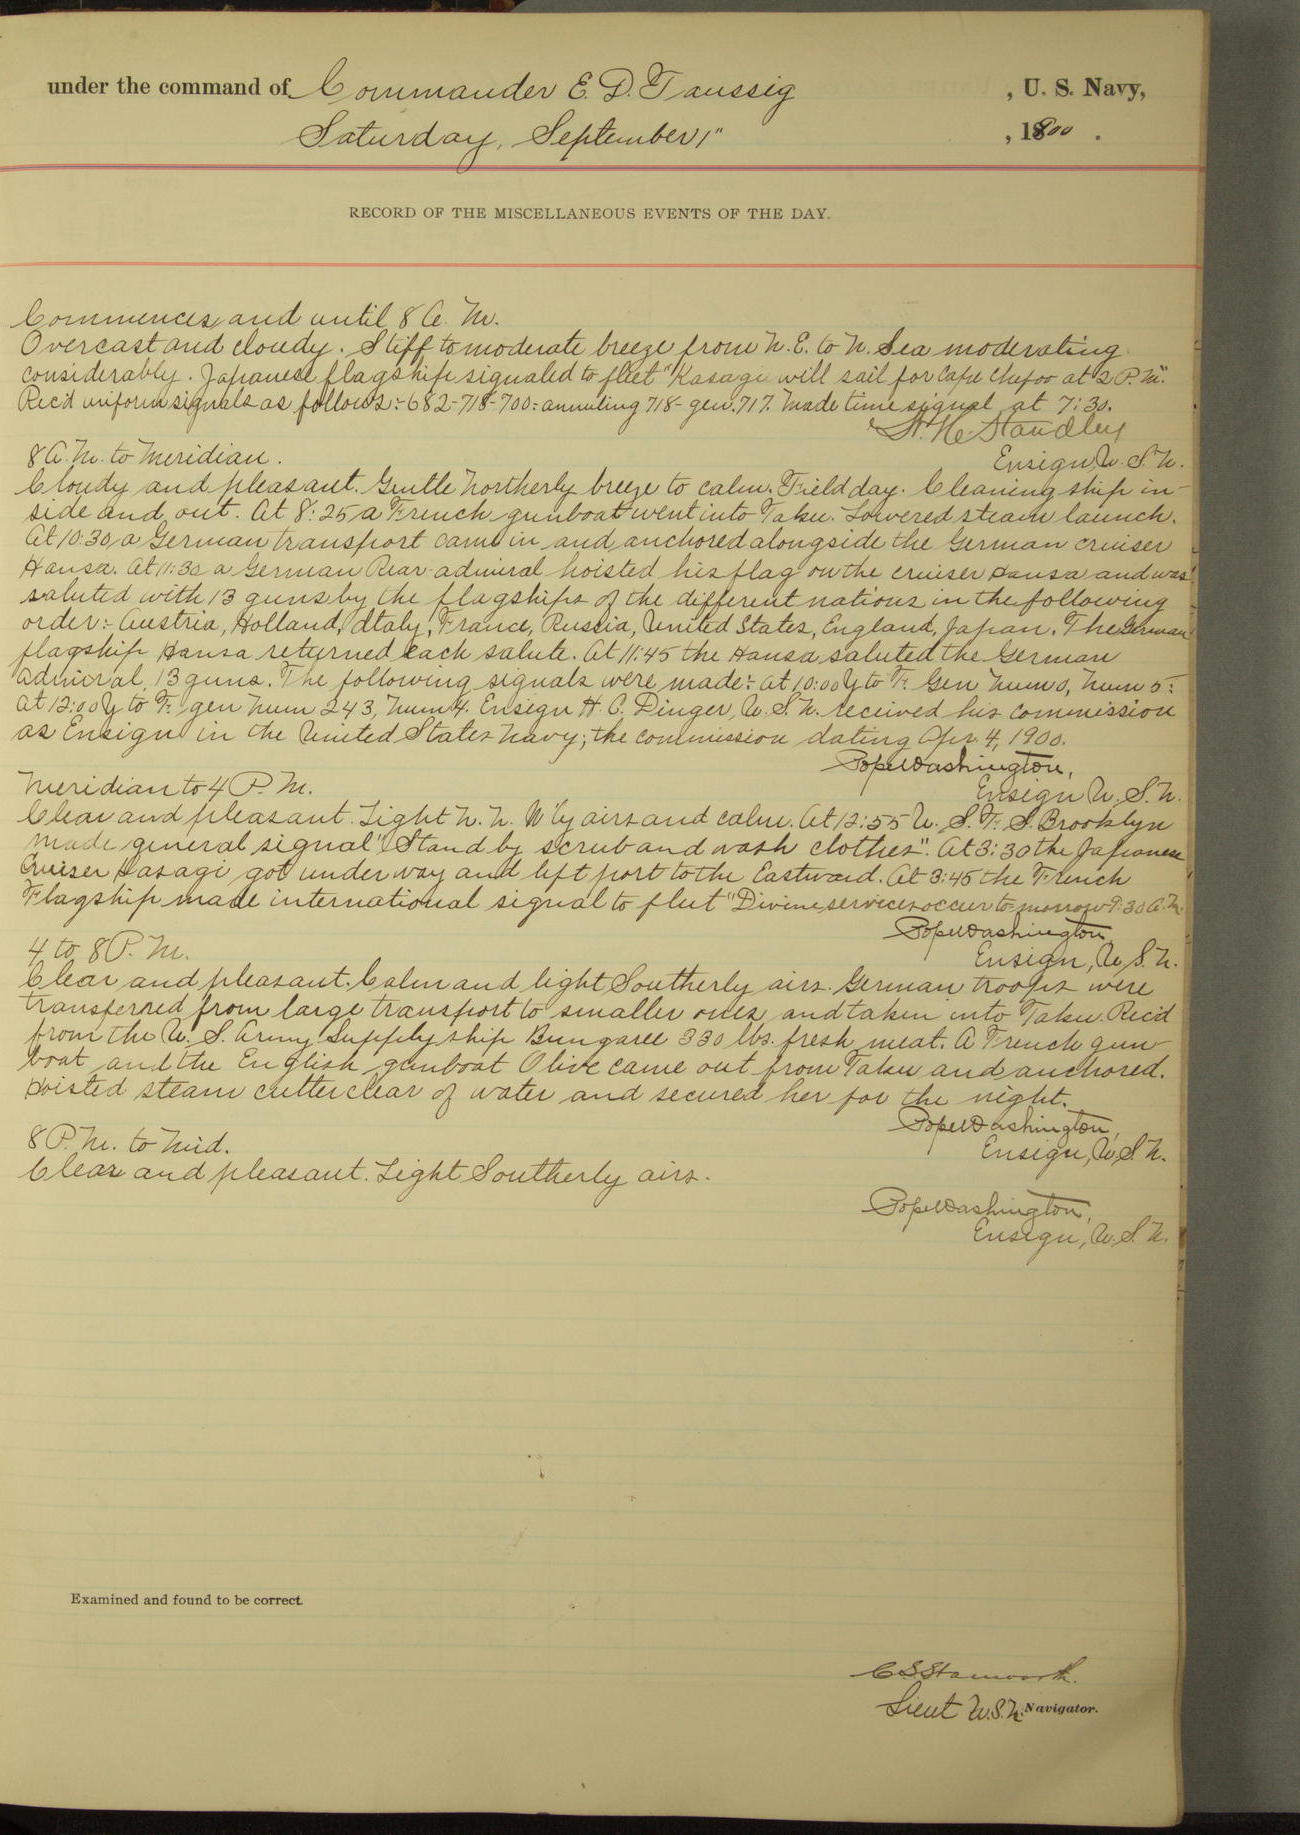 under the command of Commander E. D. Taussig , U. S. Navy,
Saturday, September 1" , 1900 .
RECORD OF THE MISCELLANEOUS EVENTS OF THE DAY.
Commences and until 8 A. M.
Overcast and cloudy. Stiff to moderate breeze from N. E. to N. Sea moderating
considerably. Japanese flagship signaled to fleet "Kasagi will sail for Cape Chefoo at 2 P. M."
Rec'd uniform signals as follows:- 682-718-700:- annuling 718- gen. 717. Made time signal at 7:30.
W. H. Standley
Ensign, U. S. N.
8 A. M. to Meridian.
Cloudy and pleasant. Gentle Northerly breeze to calm. Field day. Cleaning ship in-
side and out. At 8:25 a French gunboat went into Taku. Lowered steam launch.
At 10:30, a German transport came in and anchored alongside the German cruiser
Hansa. At 11:30 a German Rear-admiral hoisted his flag on the cruiser Hansa and was
saluted with 13 guns by the flagships of the different nations in the following
order:- Austria, Holland, Italy, France, Russia, United States, England, Japan. The German
flagship Hansa returned each salute. At 11:45 the Hansa saluted the German
Admiral, 13 guns. The following signals were made:- at 10:00 Y to F. Gen Num 0, Num 5:
At 12:00 Y to F. gen Num 243, Num 4. Ensign H. C. Dinger, U. S. N. received his commission
as Ensign in the United States Navy; the commission dating Apr. 4, 1900.
Pope Washington,
Ensign U. S. N.
Meridian to 4 P. M.
Clear and pleasant. Light N. N. W'ly airs and calm. At 12:55 U. S. F. S. Brooklyn
made general signal "Stand by scrub and wash clothes". At 3:30 the Japanese
Cruiser Kasagi got under way and left port to the Eastward. At 3:45 the French
Flagship made international signal to fleet "Divine services occur to-morrow 9:30 A. M.
Pope Washington
Ensign, U. S. N.
4 to 8 P. M.
Clear and pleasant. Calm and light Southerly airs. German troops were
transferred from large transport to smaller ones and taken into Taku. Rec'd
from the U. S. Army Supply ship Bungaree 330 lbs. fresh meat. A French gun-
boat and the English gunboat Olive came out from Taku and anchored.
Hoisted steam cutter clear of water and secured her for the night.
Pope Washington,
Ensign, U. S. N.
8 P. M. to Mid.
Clear and pleasant. Light Southerly airs.
Pope Washington,
Ensign, U. S. N.
Examined and found to be correct.
C S Stanworth.
Lieut U. S. N. Navigator.